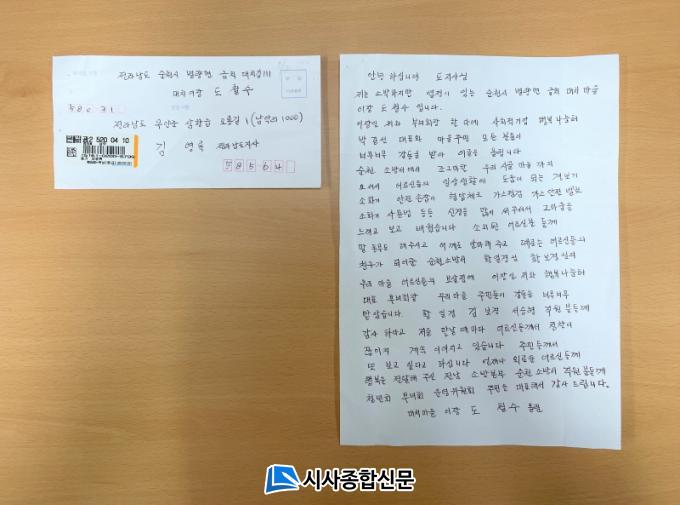 전라남도 순천시 별량면 금치 대치길 111
대치이장 도 철수
58031
전라남도 무안군 삼향읍 오룡길 1 (남악리 1000)
김 영록 전라남도지사
58564
안녕 하십니까 도지사님
저는 소박하지만 정이 있는 순천시 별량면 금치 대치 마을
이장 도 철수 입니다.
이장인 저와 부녀회장 한 미애 사회적기업 행복나눔터
박 대표와 마을주민 모든 분들이
너무너무 감동을 받아 이글을 올립니다
순천 소방서에서 조그마한 우리 시골 마을 까지
오셔서 어르신들의 일상생활에 도움이 되는
소화기 안전 점검 혈압체크 가스점검 가스안전 밸브
소화기 사용법 등등 신경을 많이 써주셔서 고마움을
느끼고 보고 배웠습니다 소외된 어르신분 들께
말 동무도 해주시고 어깨도 주고 때로는 어르신들의
친구가 되어준 순천소방서
우리 마을 어르신들의 보살핌에 이장인 저와 행복나눔터
대표 부녀회장 우리마을 주민들이 감동을 너무너무
받았습니다. 보경 서승형 직원 분들께
감사 하다고 저를 만날 때마다 어르신들께서 칭찬이
끊이지 계속 이어지고 있습니다 주민들께서
또 보고 싶다고 하십니다 언제나 외로운 어르신들께
행복을 전달해 주신 전남 소방본부 순천 소방서 직원 분들께
청년회 부녀회 운영위원회 주민을 대표해서 감사 드립니다.
대치마을 이장 도 철수 올림
시사종합신문